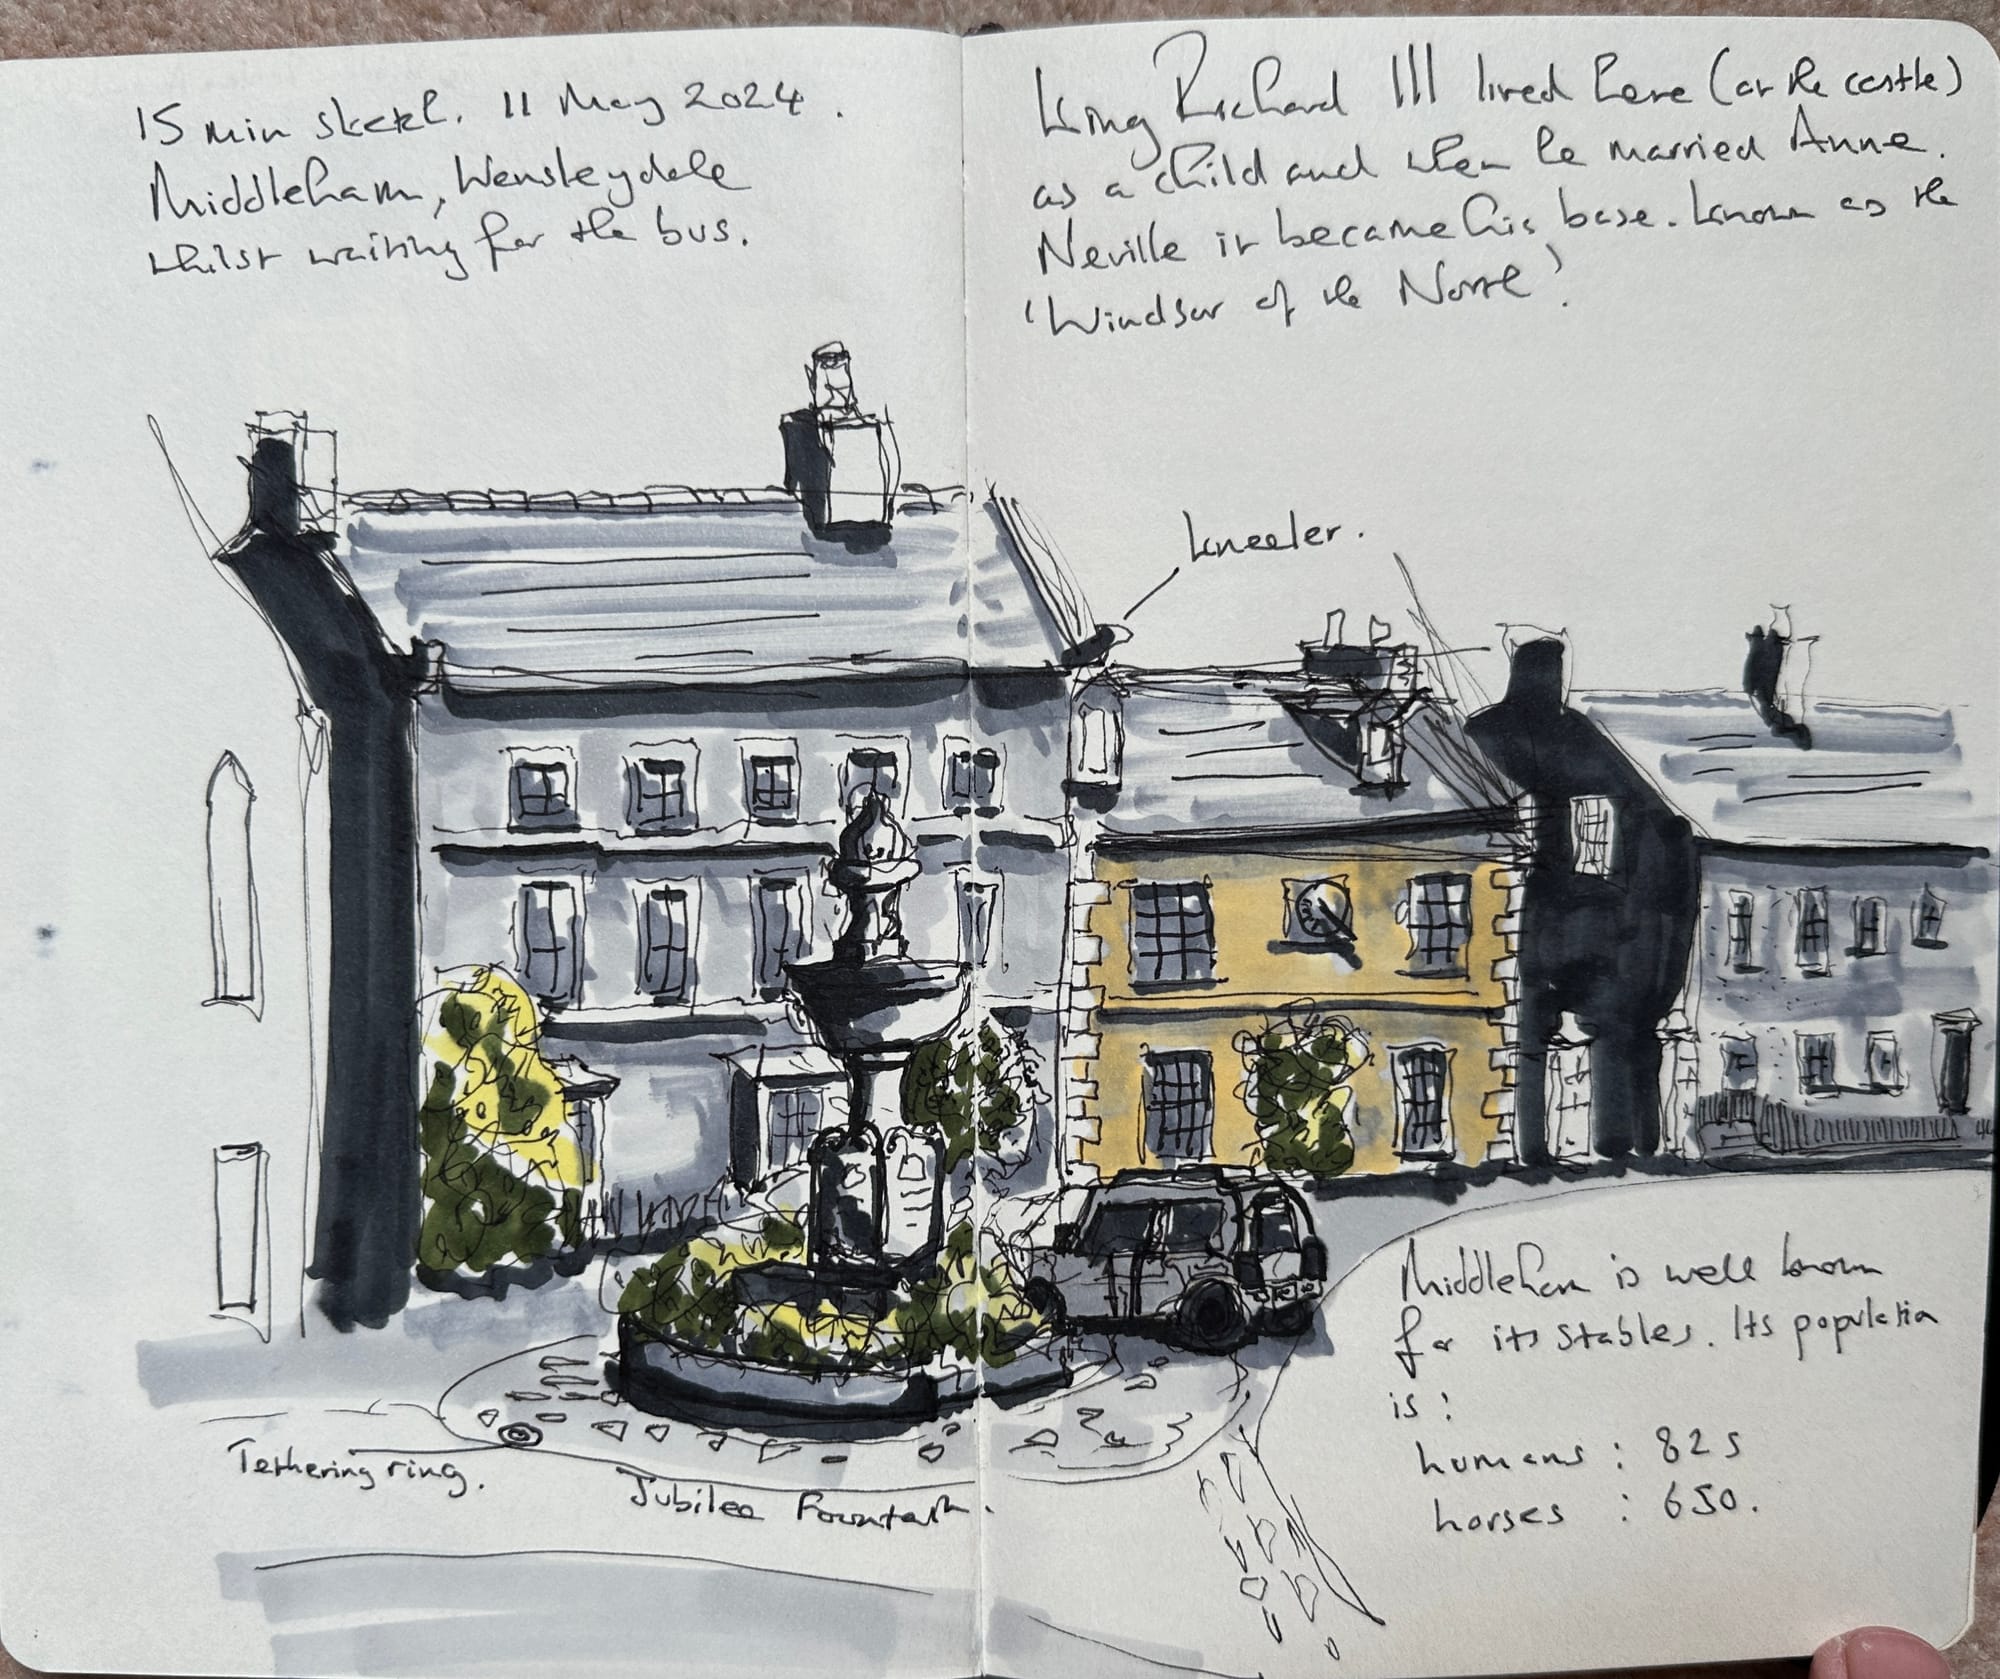 15 min sketch. 11 May 2024.
Middleham, Wensleydale
whilst waiting for the bus.
King Richard III lived here (or the castle)
as a child and when he married Anne.
Neville it became his base. Known as the
'Windsor of the North'.
kneeler.
Tethering ring.
Jubilee Fountain.
Middleham is well known
for its stables. Its population
is:
humans : 825
horses : 650.